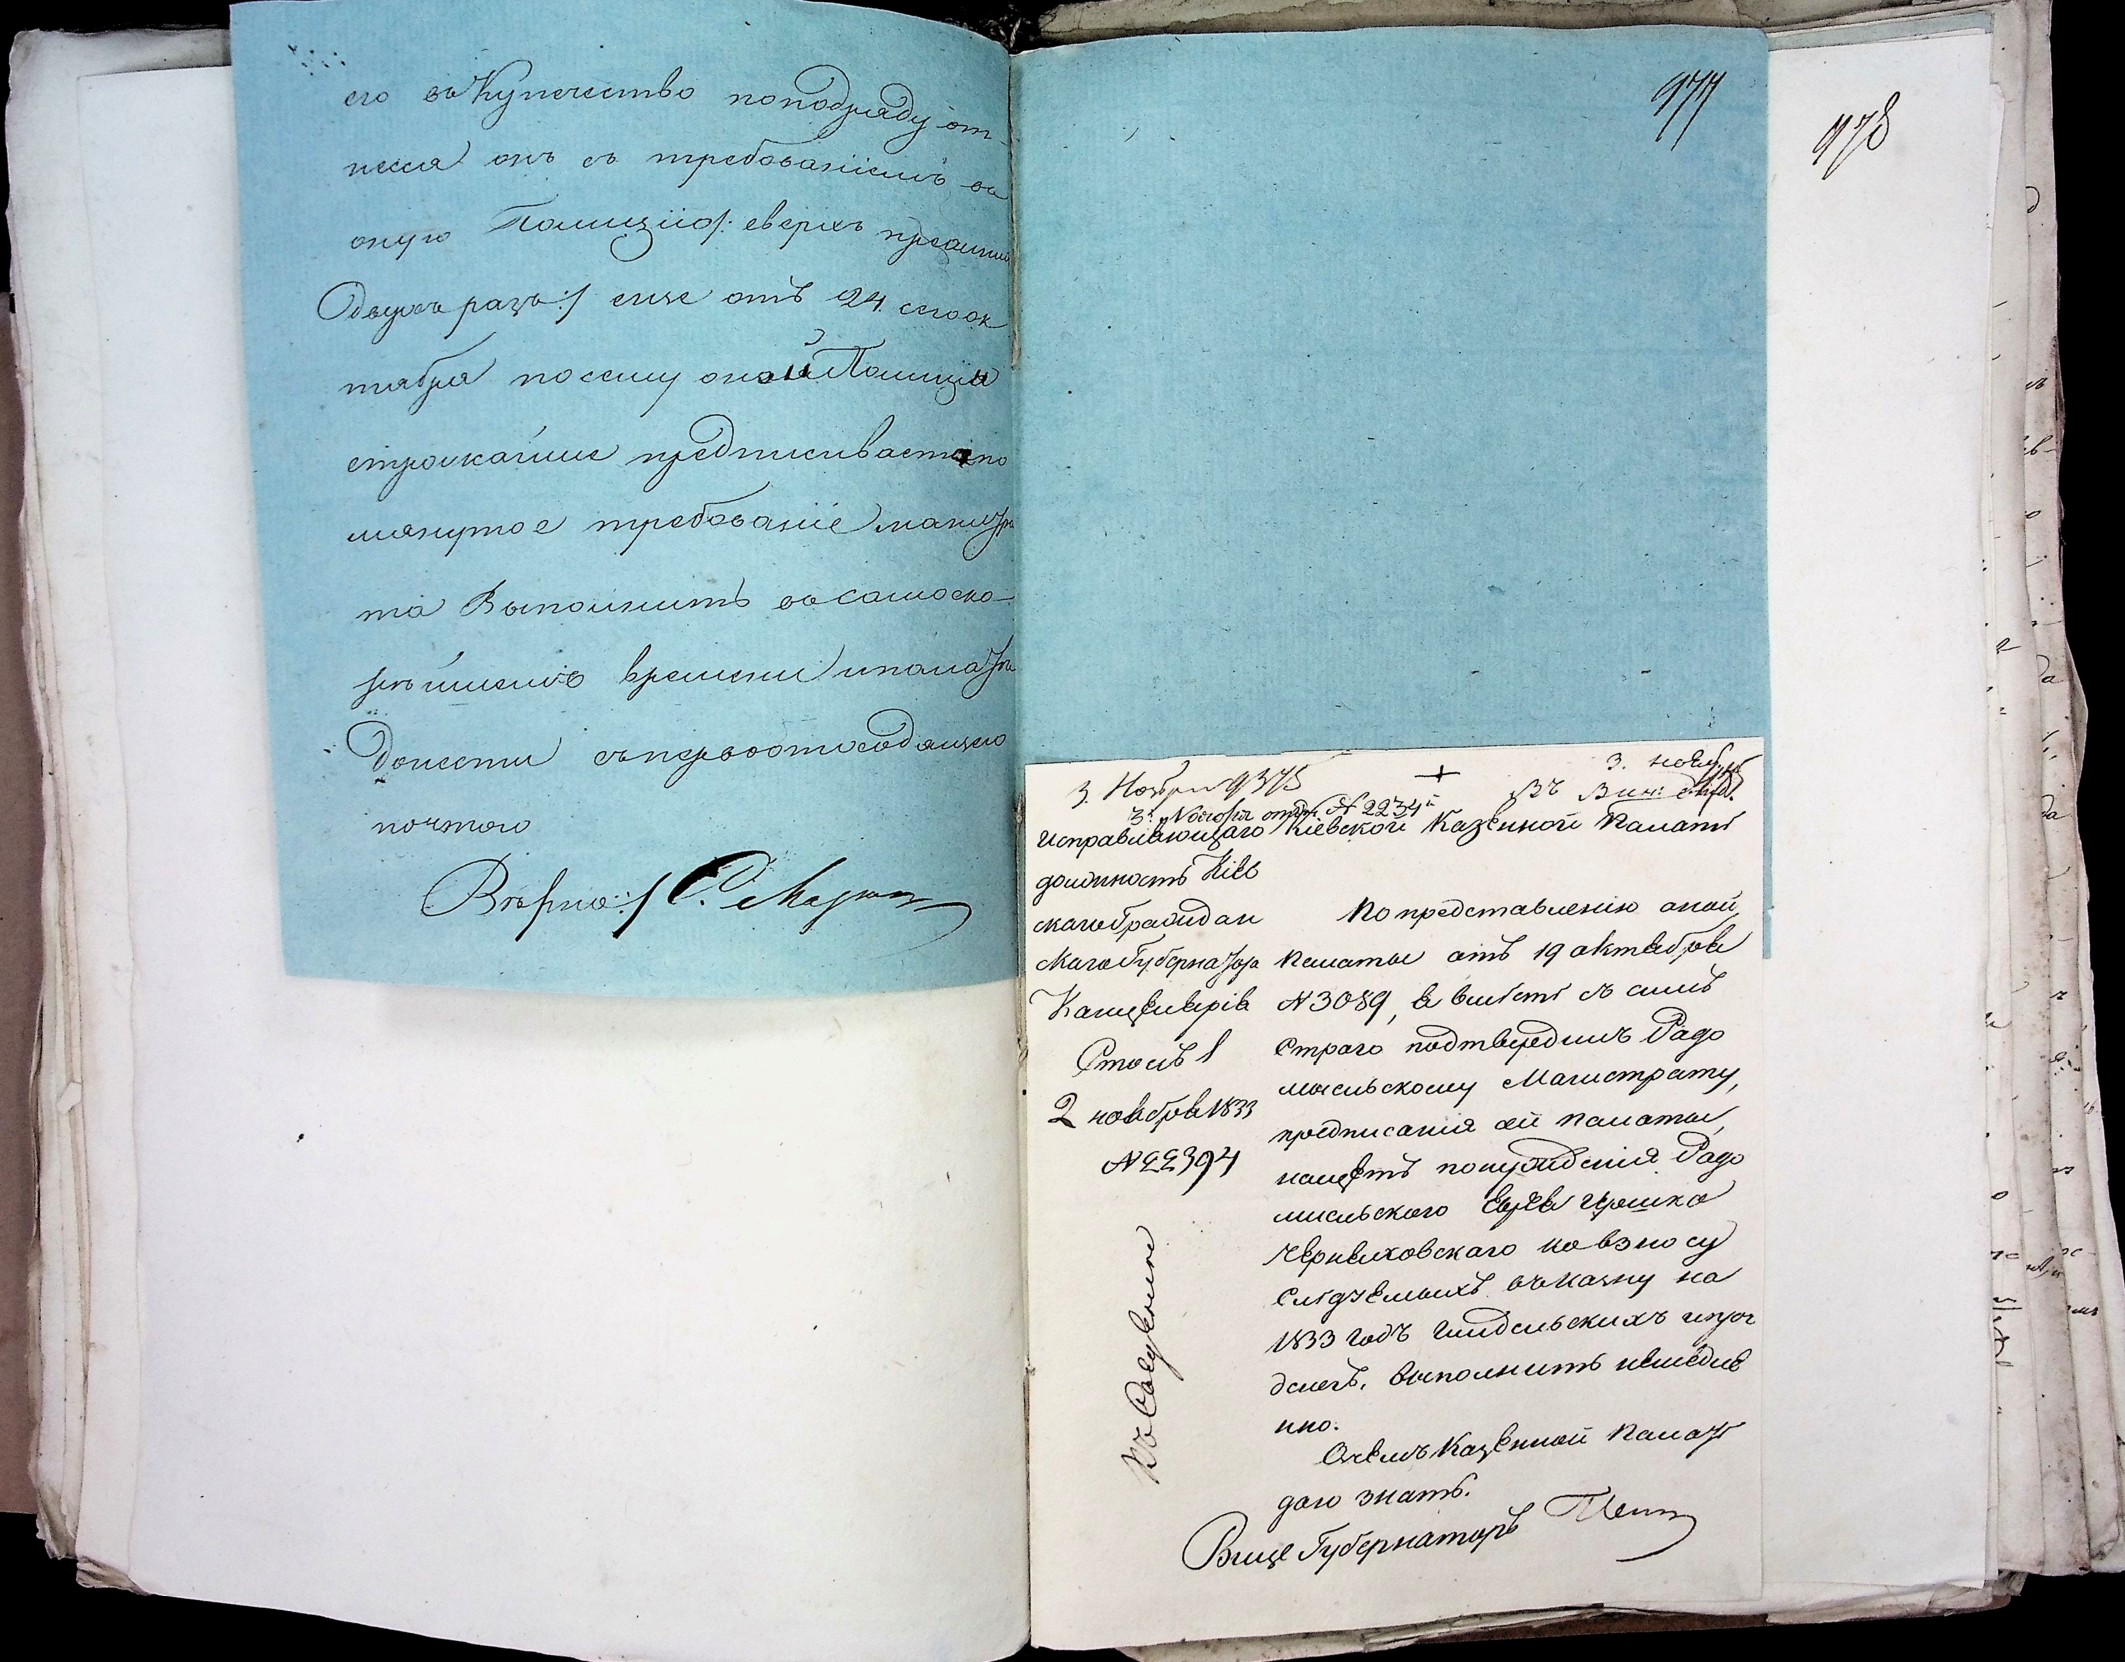 его въ Купечество поподряду от-
несся онъ съ требованіемъ въ
оную Полицію /: сверхъ прежнихъ
двухъ разъ :/ еще отъ 24. сего ок
тября по сему оной Полиціи
строжайше предписываетъ по
мянутое требованіе магистра
та Выполнить въ самоско-
рѣйшемъ времени и палатѣ
донести съ первоотходящею
почтою
Вѣрно: /
977
978
3. Ноября 9375
3. нояб.
Въ Вин: отд.
3. Ноября отдѣл. № 2234й
Исправляющаго
должность Кіев
скаго Граждан
скаго Губернатора
Канцелярія
Столъ 1
2 ноября 1833
№ 22394
Къ Свѣденію
Кіевской Казенной Палатѣ
По представленію оной
Палаты отъ 19 октября
№ 3089, я вмѣстѣ съ симъ
строго подтвердилъ Радо
мысльскому Магистрату,
предписанія сей Палаты,
насчетъ понужденія Радо
мысльского Еврея Ицька
Черняховскаго ко взносу
слѣдуемыхъ въ казну на
1833 годъ гильдейскихъ и проч
денегъ, выполнить немедлен
но.
О чемъ Казенной Палатѣ
даю знать.
Вице Губернаторъ